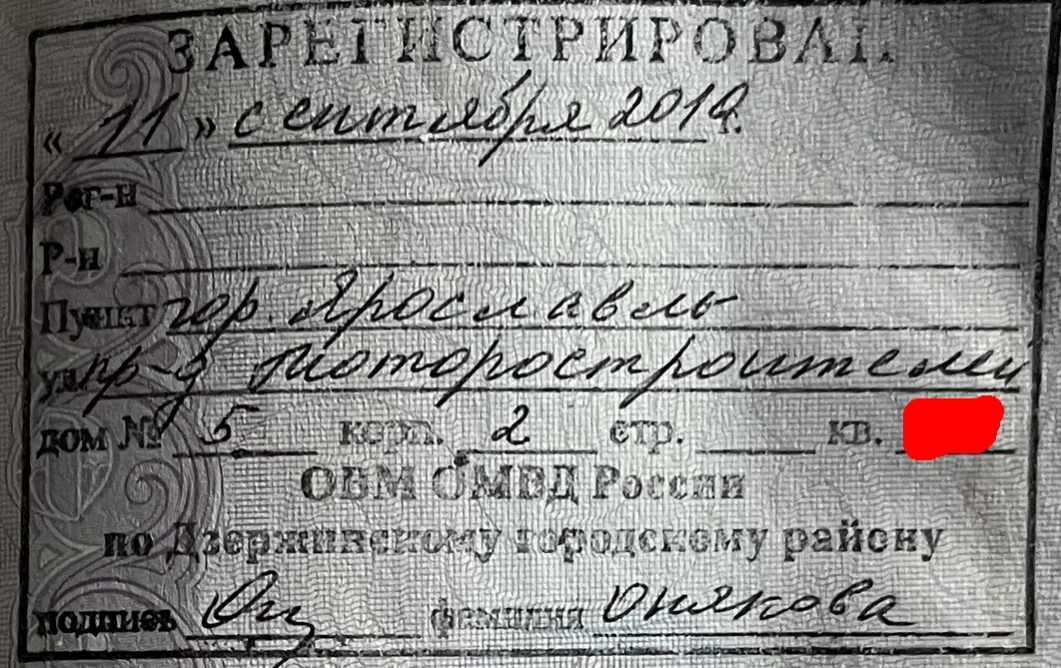 ЗАРЕГИСТРИРОВАН
« 11 » сентября 2019.
Рег-н
Р-н
Пункт гор. Ярославль
ул. пр-д Моторостроителей
дом № 5 корп. 2 стр. кв.
ОВМ ОМВД России
по Дзержинскому городскому району
подпись фамилия Онякова